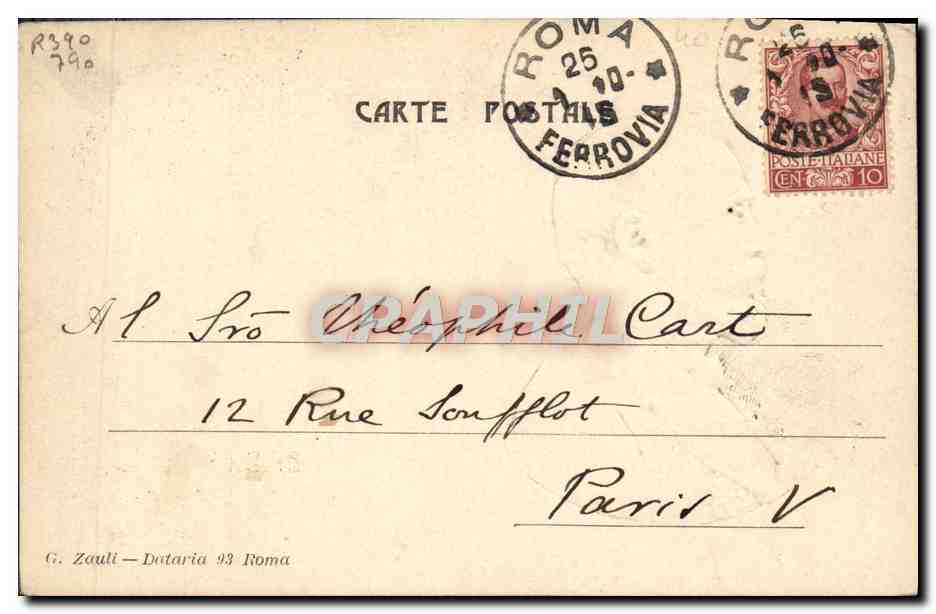 R390
790
ROMA
25
10-
FERROVIA
ROMA
25
10-
FERROVIA
POSTE·ITALIANE
CEN· 10
CARTE POSTALE
Al Sro Théophile Cart
CPARPHIL
12 Rue Soufflot
Paris V
G. Zauli — Dataria 93 Roma